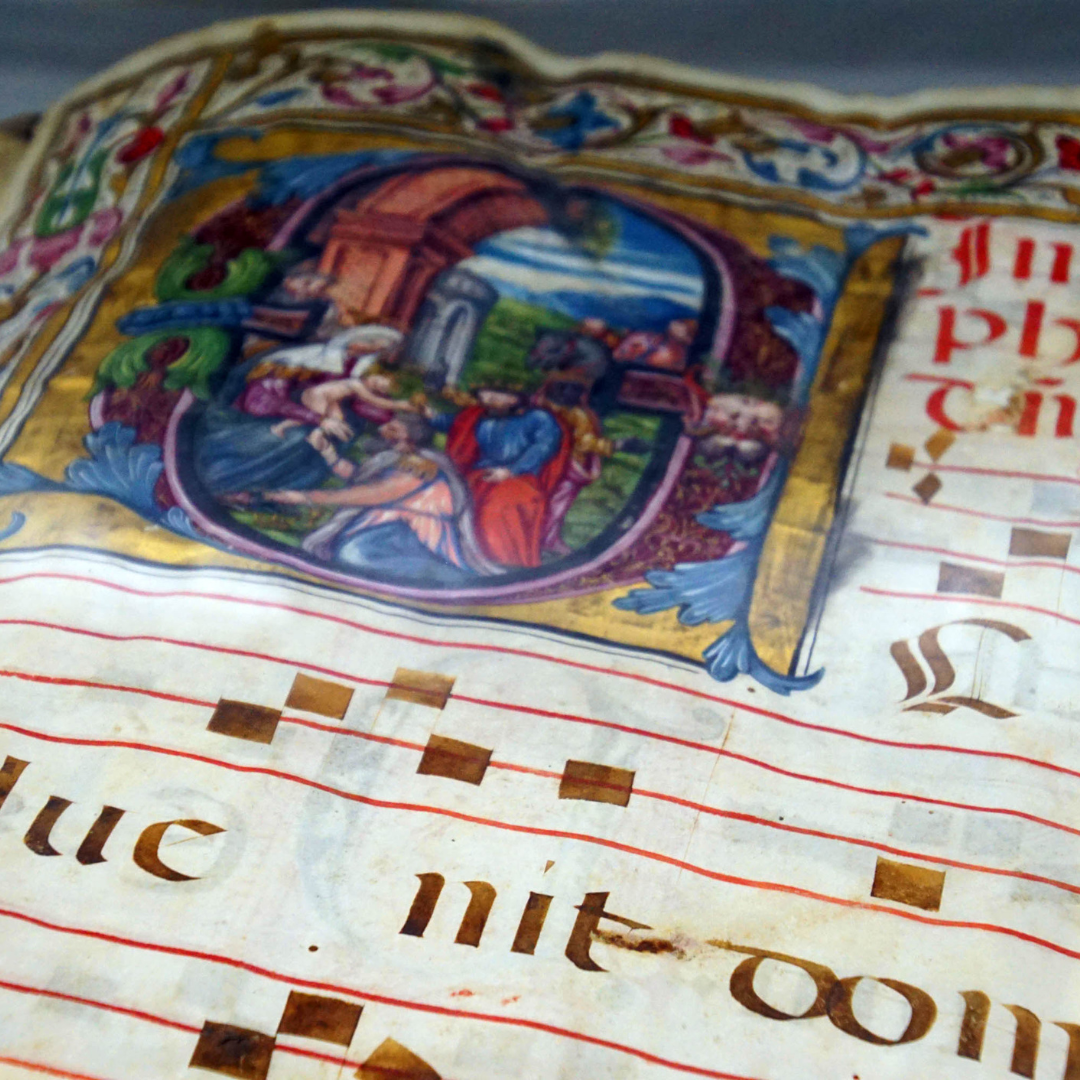 In
ph
Dñ
C
ue nit dom